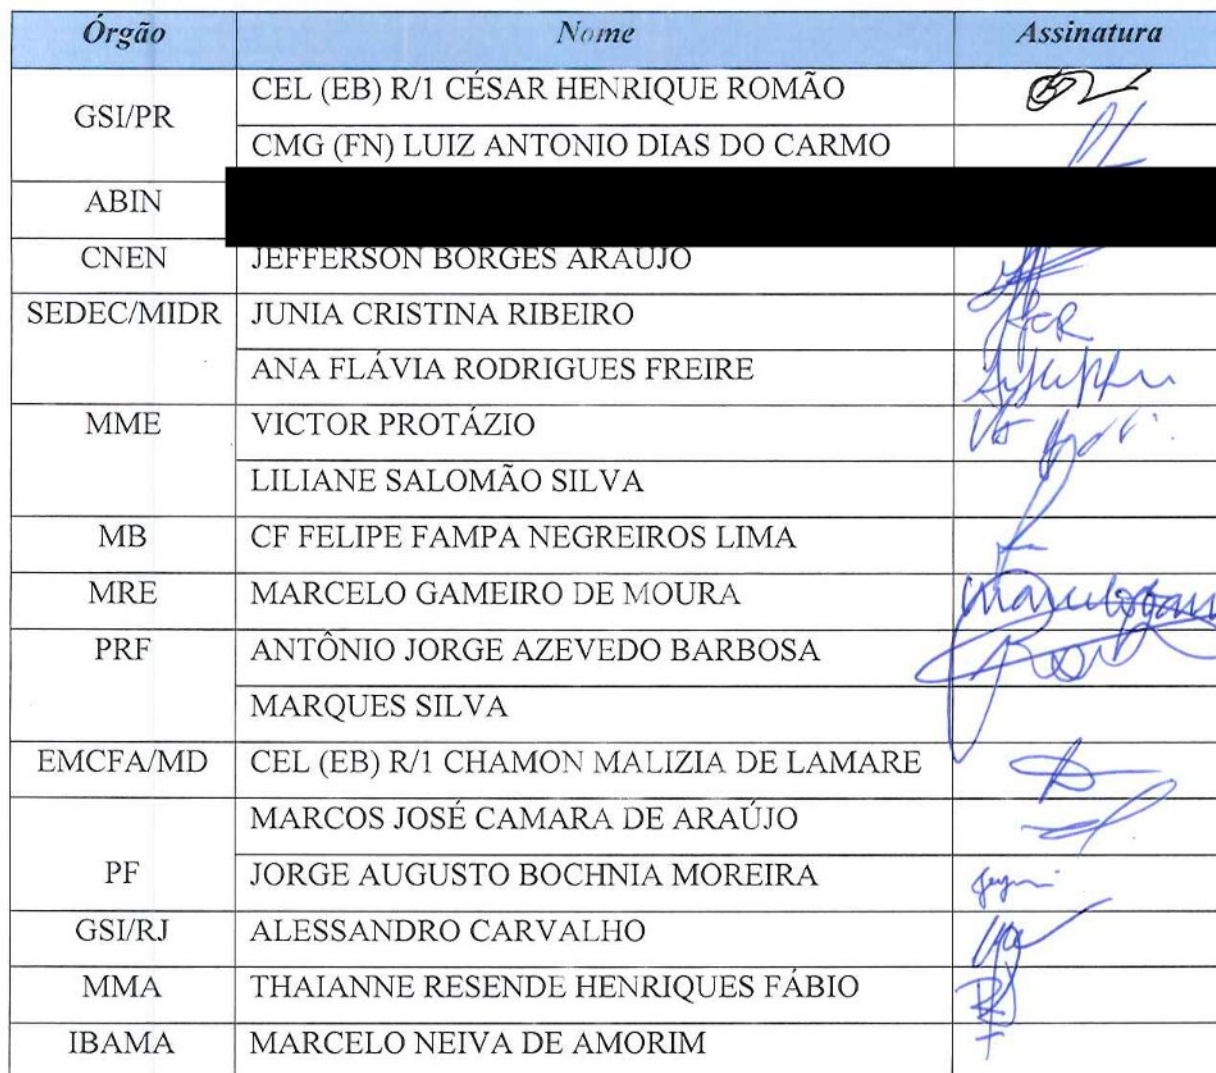 Órgão Nome Assinatura
GSI/PR CEL (EB) R/1 CÉSAR HENRIQUE ROMÃO
CMG (FN) LUIZ ANTONIO DIAS DO CARMO
ABIN
CNEN JEFFERSON BORGES ARAÚJO
SEDEC/MIDR JUNIA CRISTINA RIBEIRO
ANA FLÁVIA RODRIGUES FREIRE
MME VICTOR PROTÁZIO
LILIANE SALOMÃO SILVA
MB CF FELIPE FAMPA NEGREIROS LIMA
MRE MARCELO GAMEIRO DE MOURA
PRF ANTÔNIO JORGE AZEVEDO BARBOSA
MARQUES SILVA
EMCFA/MD CEL (EB) R/1 CHAMON MALIZIA DE LAMARE
MARCOS JOSÉ CAMARA DE ARAÚJO
PF JORGE AUGUSTO BOCHNIA MOREIRA
GSI/RJ ALESSANDRO CARVALHO
MMA THAIANNE RESENDE HENRIQUES FÁBIO
IBAMA MARCELO NEIVA DE AMORIM